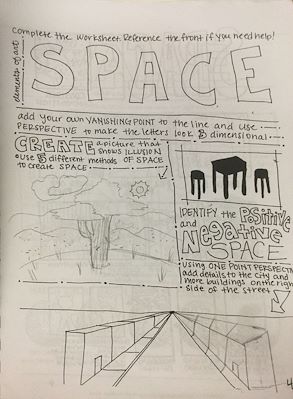 Complete the worksheet. Reference the front if you need help!
elements of art
SPACE
add your own VANISHING POINT to the line and use
PERSPECTIVE to make the letters look 3 dimensional.
CREATE a picture that
shows ILLUSION
use 3 different methods of SPACE
to create SPACE
IDENTIFY the Positive
and Negative
SPACE
using ONE POINT PERSPECTIVE
add details to the city and
more buildings on the right
side of the street
4